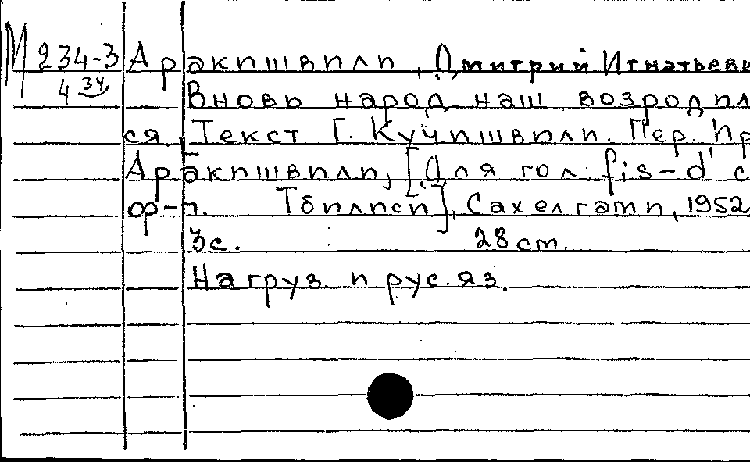 М 234-3 Аракишвили, Дмитрий Игнатьеви
4 34.
Вновь народ наш возродил
ся. Текст Г. Кучишвили. Пер. Ир
Аракишвили, [Для гол. fis-d' с
ф-п. Тбилиси], Сахелгами, 1952
3с. 28 cm
На груз. и рус. яз.